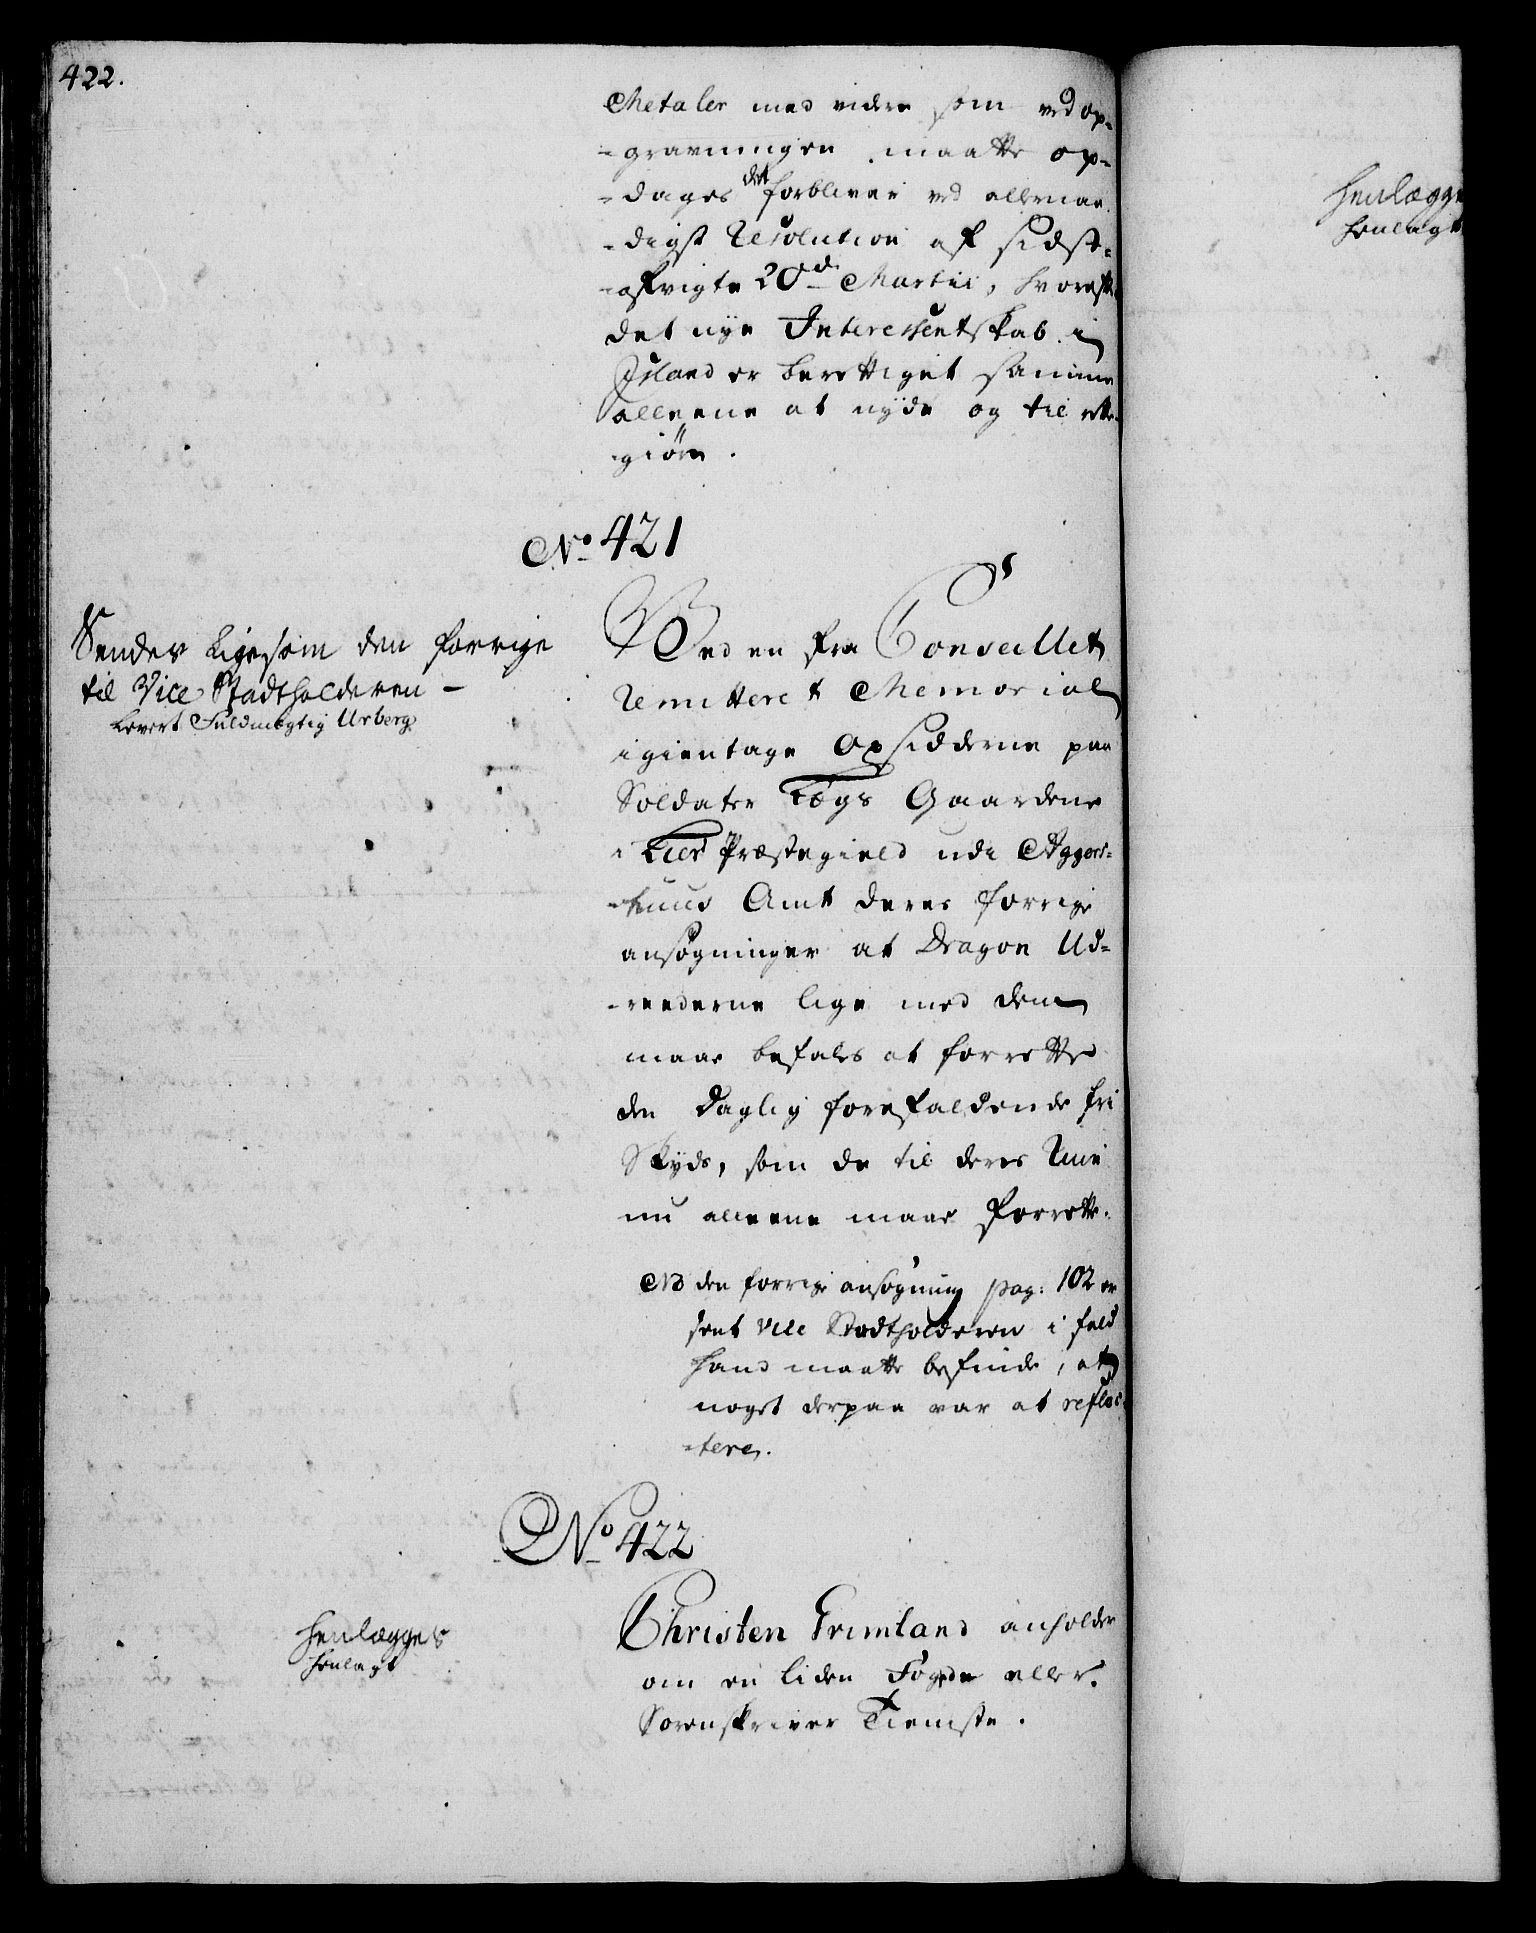 422.
Metaler med videre som ved op-
-gravningen maatte op-
-dages det forbliver ved allernaa-
-digst Resolution af sidst-
-afvigte 20d Martii, hvorefter
det nye Interessentskab i
Island er berettiget samme
alleene at nyde og til rette-
-giøre.
No 421
Sendes ligesom den forrige
til Vice Stadtholderen -
Levert Fuldmegtig Urberg.
Ved en fra Conseillet
Remitteret Memorial
igientage Opsidderne paa
Soldater Lægs Gaardene
i Lier Præstegield udi Agger-
-huus Amt deres forrige
ansøgninger at Dragon Ud-
-reederne lige med dem
maae befales at forrette
den daglig forefaldende fri
Skyds, som de til deres Ruin
nu alleene maae forrette.
NB den forrige ansøgning pag: 102 er
sent Vice Stadtholderen i fald
hand maatte befinde, at
noget derpaa var at reflec-
-tere.
No 422
Henlægges
henlagt
Christen Grimland anholder
om en liden Fogde eller
Sorenskriver Tieniste.
Henlægge
henlagt